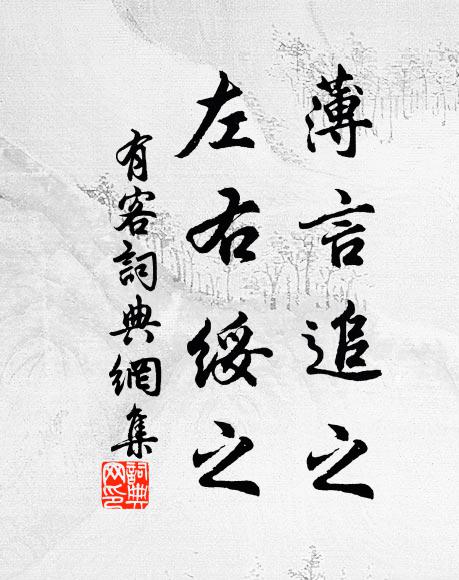 薄言追之
左右綏之
有客詞典網集
詞典网印